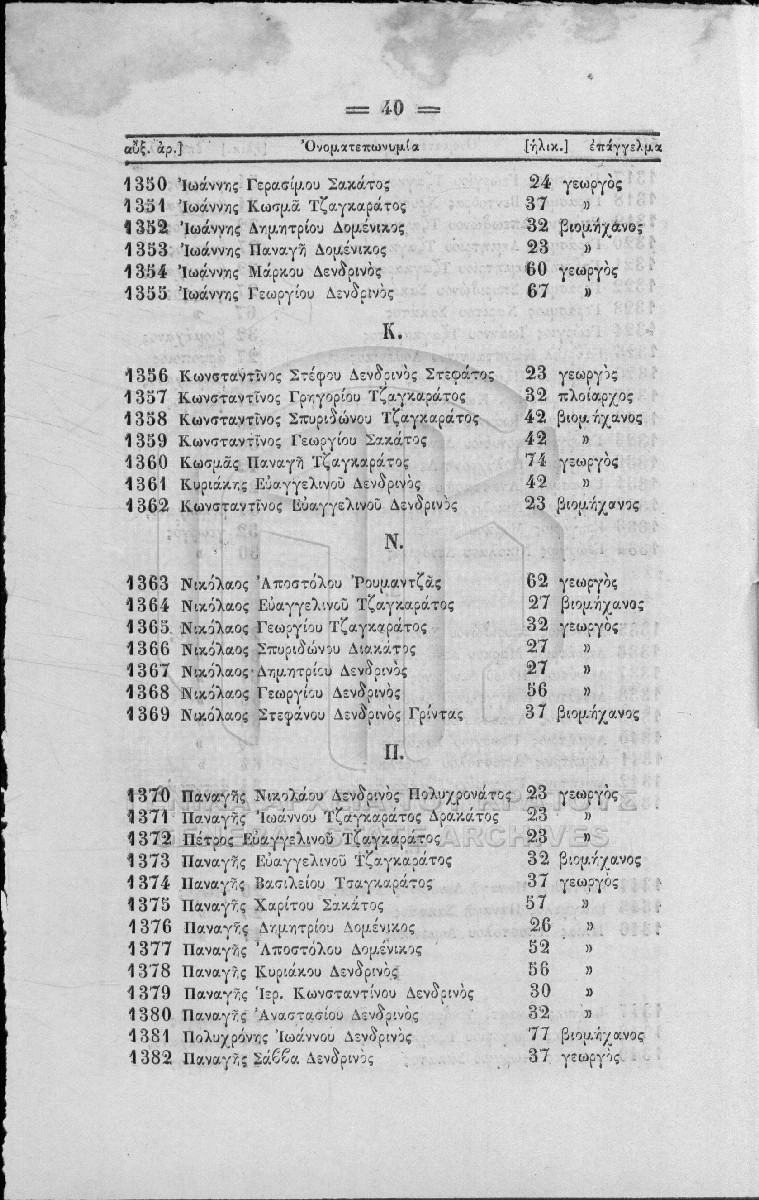 = 40 =
αὔξ. ἀρ.] Ὀνοματεπωνυμία [ἡλικ.] ἐπάγγελμα
1350 Ἰωάννης Γερασίμου Σακάτος 24 γεωργὸς
1351 Ἰωάννης Κωσμᾶ Τζαγκαράτος 37 »
1352 Ἰωάννης Δημητρίου Δομένικος 32 βιομήχανος
1353 Ἰωάννης Παναγῆ Δομένικος 23 »
1354 Ἰωάννης Μάρκου Δενδρινὸς 60 γεωργὸς
1355 Ἰωάννης Γεωργίου Δενδρινὸς 67 »
Κ.
1356 Κωνσταντῖνος Στέφου Δενδρινὸς Στεφάτος 23 γεωργὸς
1357 Κωνσταντῖνος Γρηγορίου Τζαγκαράτος 32 πλοίαρχος
1358 Κωνσταντῖνος Σπυριδώνου Τζαγκαράτος 42 βιομήχανος
1359 Κωνσταντῖνος Γεωργίου Σακάτος 42 »
1360 Κωσμᾶς Παναγῆ Τζαγκαράτος 74 γεωργὸς
1361 Κυριάκης Εὐαγγελινοῦ Δενδρινὸς 42 »
1362 Κωνσταντῖνος Εὐαγγελινοῦ Δενδρινὸς 23 βιομήχανος
Ν.
1363 Νικόλαος Ἀποστόλου Ῥουμαντζᾶς 62 γεωργὸς
1364 Νικόλαος Εὐαγγελινοῦ Τζαγκαράτος 27 βιομήχανος
1365 Νικόλαος Γεωργίου Τζαγκαράτος 32 γεωργὸς
1366 Νικόλαος Σπυριδώνου Διακάτος 27 »
1367 Νικόλαος Δημητρίου Δενδρινὸς 27 »
1368 Νικόλαος Γεωργίου Δενδρινὸς 56 »
1369 Νικόλαος Στεφάνου Δενδρινὸς Γρίντας 37 βιομήχανος
Π.
1370 Παναγῆς Νικολάου Δενδρινὸς Πολυχρονάτος 23 γεωργὸς
1371 Παναγῆς Ἰωάννου Τζαγκαράτος Δρακάτος 23 »
1372 Πέτρος Εὐαγγελινοῦ Τζαγκαράτος 23 »
1373 Παναγῆς Εὐαγγελινοῦ Τζαγκαράτος 32 βιομήχανος
1374 Παναγῆς Βασιλείου Τσαγκαράτος 37 γεωργὸς
1375 Παναγῆς Χαρίτου Σακάτος 57 »
1376 Παναγῆς Δημητρίου Δομένικος 26 »
1377 Παναγῆς Ἀποστόλου Δομένικος 52 »
1378 Παναγῆς Κυριάκου Δενδρινὸς 56 »
1379 Παναγῆς Ἱερ. Κωνσταντίνου Δενδρινὸς 30 »
1380 Παναγῆς Ἀναστασίου Δενδρινὸς 32 »
1381 Πολυχρόνης Ἰωάννου Δενδρινὸς 77 βιομήχανος
1382 Παναγῆς Σάββα Δενδρινὸς 37 γεωργὸς